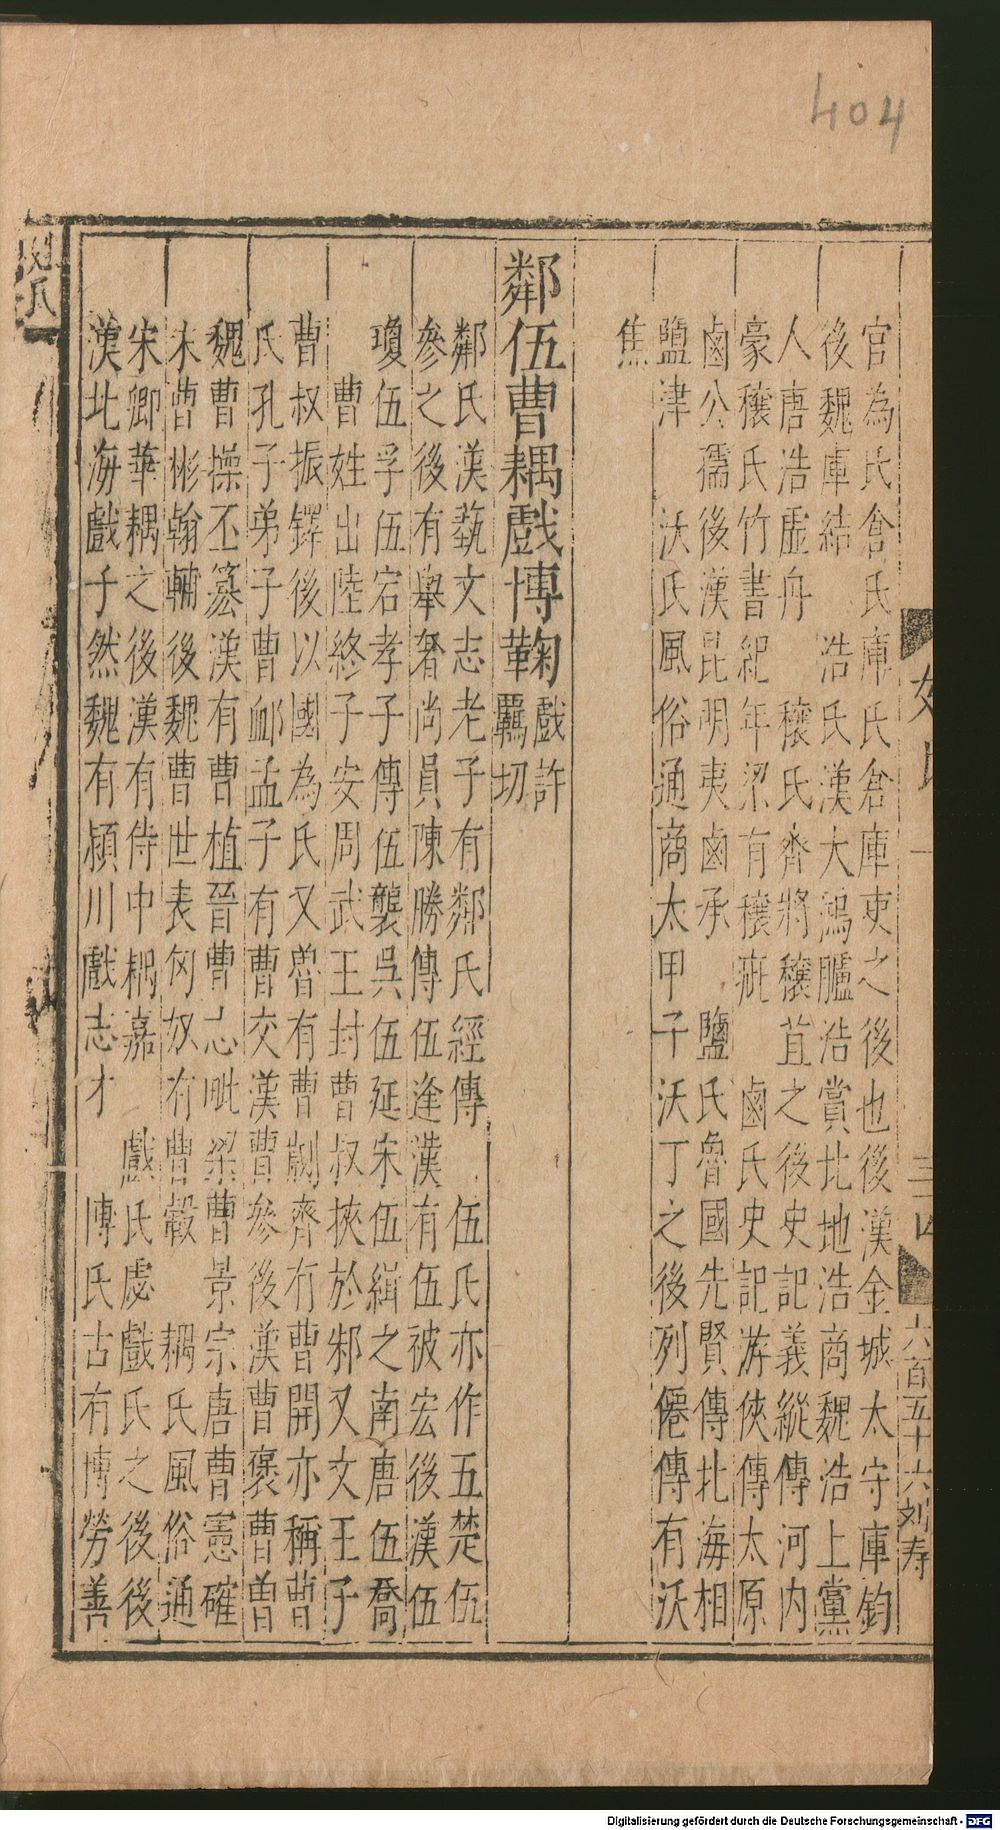 404
官為氏倉氏庫氏倉庫吏之後也後漢金城太守庫鈞
後魏庫結　浩氏漢大鴻臚浩賞北地浩商魏浩上黨
人唐浩虛舟　穰氏齊將穰苴之後史記義縱傳河內
豪穰氏竹書紀年梁有穰疵　鹵氏史記游俠傳太原
鹵公孺後漢昆明夷鹵承　鹽氏魯國先賢傳北海相
鹽津　沃氏風俗通商太甲子沃丁之後列僊傳有沃
焦
鄰伍曹耦戲博鞠戲許
羈切
鄰氏漢蓺文志老子有鄰氏經傳　伍氏亦作五楚伍
參之後有舉奢尚員陳勝傳伍逢漢有伍被宏後漢伍
瓊伍孚伍宕孝子傳伍襲吳伍延宋伍緝之南唐伍喬
曹姓出陸終子安周武王封曹叔挾於邾又文王子
曹叔振鐸後以國為氏又魯有曹劌齊有曹開亦稱曹
氏孔子弟子曹卹孟子有曹交漢曹參後漢曹褒曹曾
魏曹操丕篡漢有曹植晉曹志毗梁曹景宗唐曹憲確
宋曹彬翰輔後魏曹世表匈奴有曹㲄　耦氏風俗通
宋卿華耦之後漢有侍中耦嘉　戲氏虙戲氏之後後
漢北海戲子然魏有潁川戲志才　博氏古有博勞善
姓氏
六百五十六刘寿
Digitalisierung gefördert durch die Deutsche Forschungsgemeinschaft - DFG